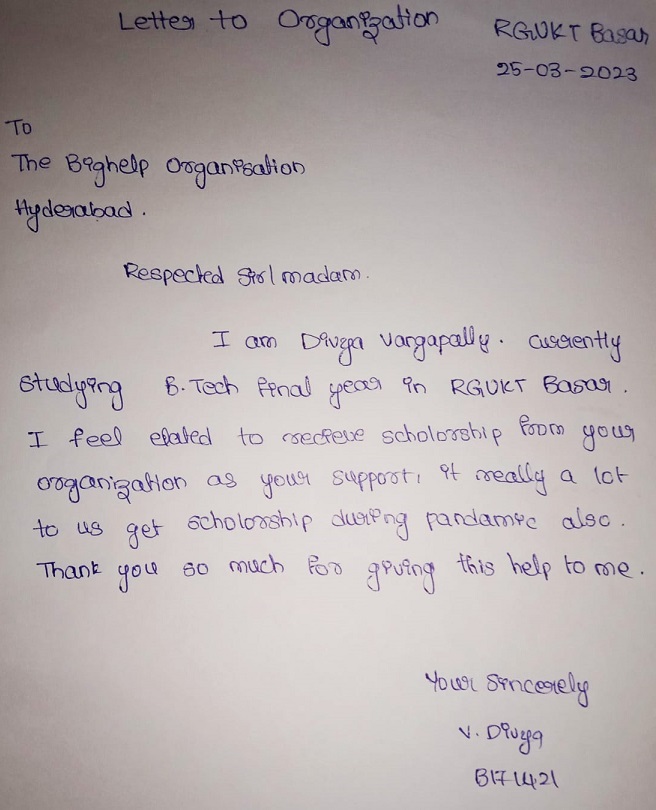 Letter to Organization
RGUKT Basar
25-03-2023
To
The Bighelp Organisation
Hyderabad.
Respected Sir/madam.
I am Divya Vargapally. currently
studying B.Tech final year in RGUKT Basar.
I feel elated to recieve scholorship from your
organization as your support, it really a lot
to us get scholorship during pandamic also.
Thank you so much for giving this help to me.
Your Sincerely
V. Divya
B171421